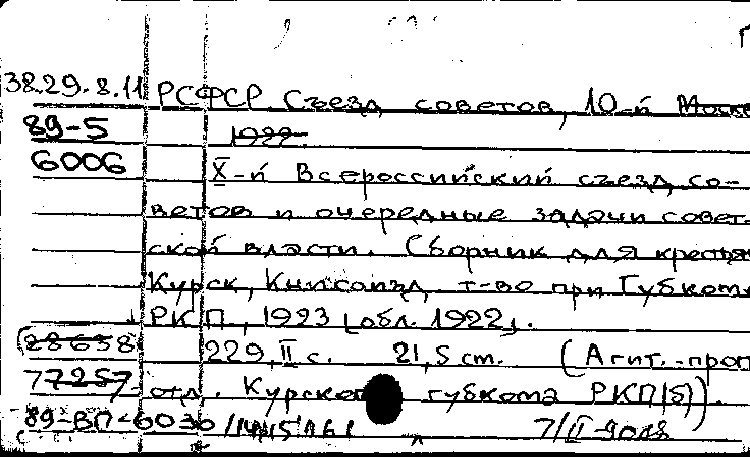 38.29.8.11 РСФСР. Съезд советов, 10-й Москв
89-5 1922.
6006 X-й Всероссийский съезд со-
ветов и очередные задачи совет-
ской власти. Сборник для крестьян
Курск, Книгоизд. т-во при Губком
РКП, 1923 [обл. 1922].
28658 229, II с. 21,5 см. (Агит.-проп
77257 отд. Курского губкома РКП(б)).
89-ВП-6030